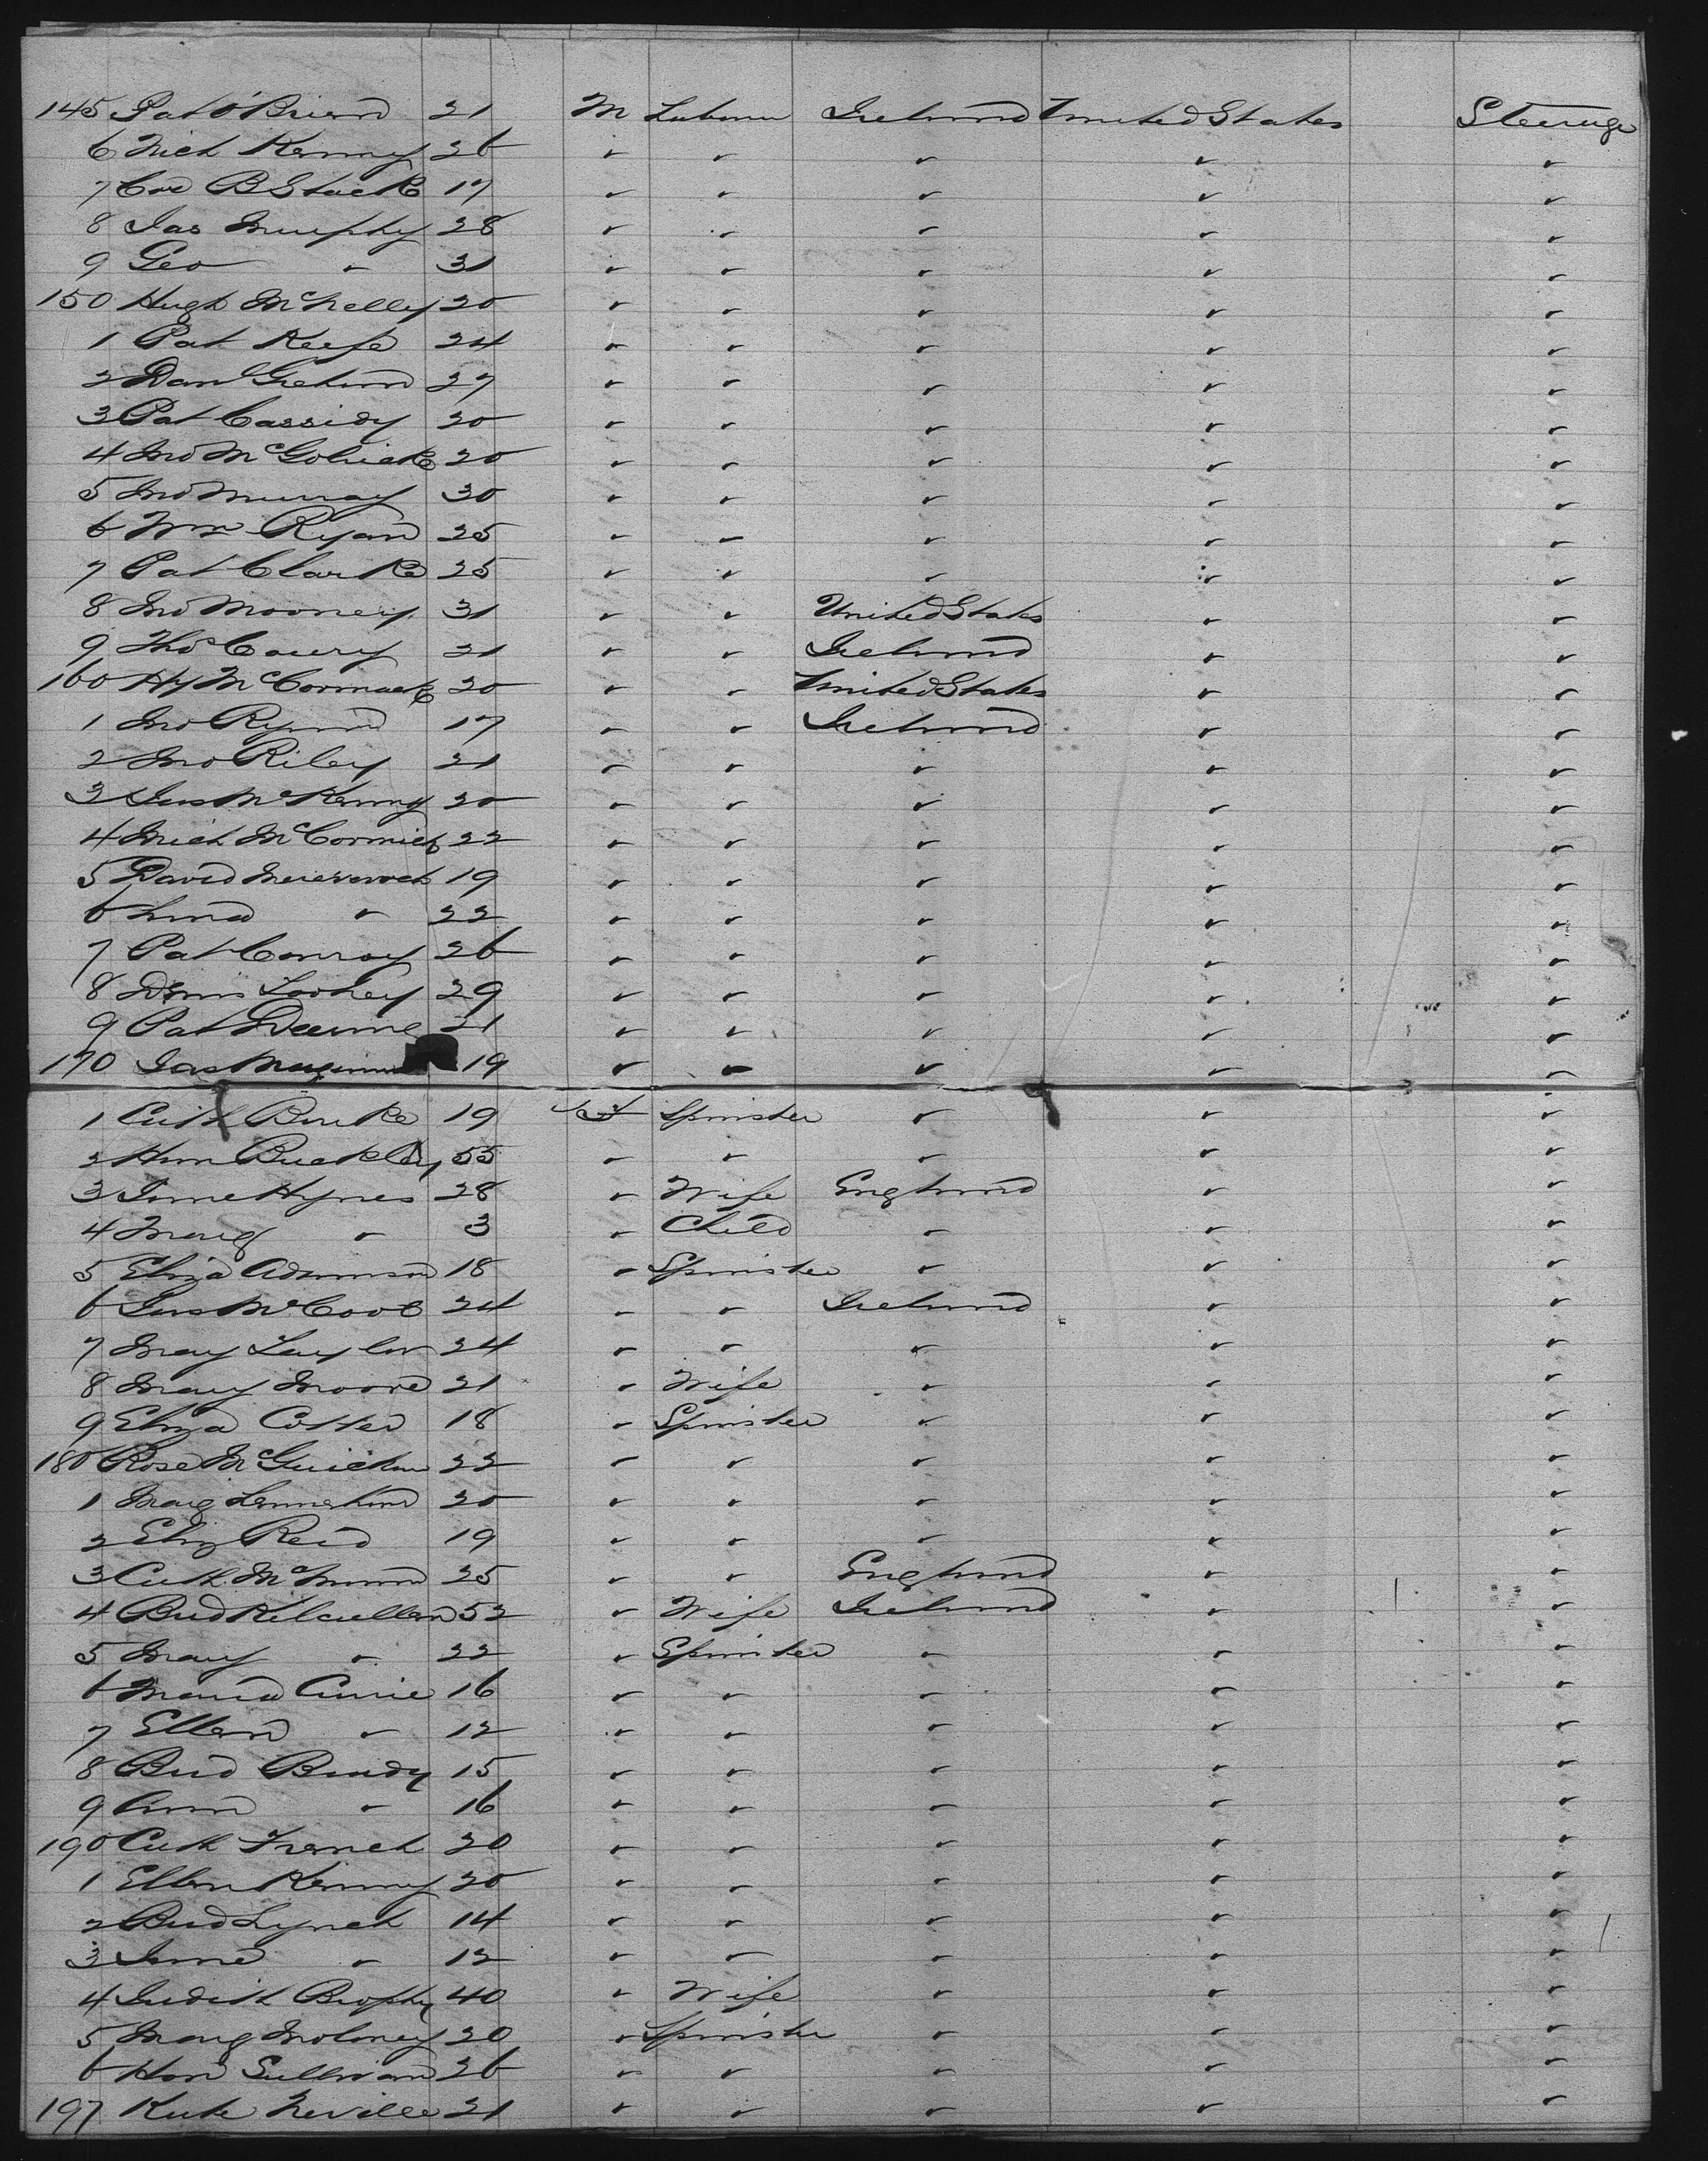 145 Pat O'Brien 21 M Laborer Ireland United States Steerage
6 Mich Kenny 26 " " " " "
7 Cor B Stack 17 " " " " "
8 Jas Murphy 28 " " " " "
9 Geo " 31 " " " " "
150 Hugh McNelly 20 " " " " "
1 Pat Keefe 24 " " " " "
2 Danl Graham 27 " " " " "
3 Pat Cassidy 20 " " " " "
4 Jno McGolrick 20 " " " " "
5 Jno Murray 30 " " " " "
6 Wm Ryan 25 " " " " "
7 Pat Clark 25 " " " " "
8 Jno Mooney 31 " " United States " "
9 Thos 21 " " Ireland " "
160 Hy McCormack 20 " " United States " "
1 Jno Ryan 17 " " Ireland " "
2 Jno Riley 21 " " " " "
3 Jas McKenny 20 " " " " "
4 Mich McCormick 22 " " " " "
5 David 19 " " " " "
6 " 22 " " " " "
7 Pat Conroy 26 " " " " "
8 Denis 29 " " " " "
9 Pat 21 " " " " "
170 Jas 19 " " " " "
1 Cath Burke 19 F Spinster " " "
2 Han Buckley 55 " " " " "
3 Jane Hynes 28 " Wife England " "
4 Marg " 3 " Child " " "
5 Eliza Adamson 18 " Spinster " " "
6 McCool 24 " " Ireland " "
7 Mary Taylor 24 " " " " "
8 Mary Moore 21 " Wife " " "
9 Eliza Cotter 18 " Spinster " " "
180 Rose McGuickan 22 " " " " "
1 Marg Lannahan 20 " " " " "
2 Eliz Reid 19 " " " " "
3 Cath 25 " " England " "
4 Brid Kilcullen 52 " Wife Ireland " "
5 Mary " 22 " Spinster " " "
6 Maria 16 " " " " "
7 Ellen " 12 " " " " "
8 Brid Brady 15 " " " " "
9 Ann " 16 " " " " "
190 Cath French 20 " " " " "
1 Ellen Kenny 20 " " " " "
2 Brid Lynch 14 " " " " "
3 Jane " 12 " " " " "
4 Judith Brophy 40 " Wife " " "
5 Marg Moloney 20 " Spinster " " "
6 Hon Sullivan 26 " " " " "
197 Kate Neville 21 " " " " "